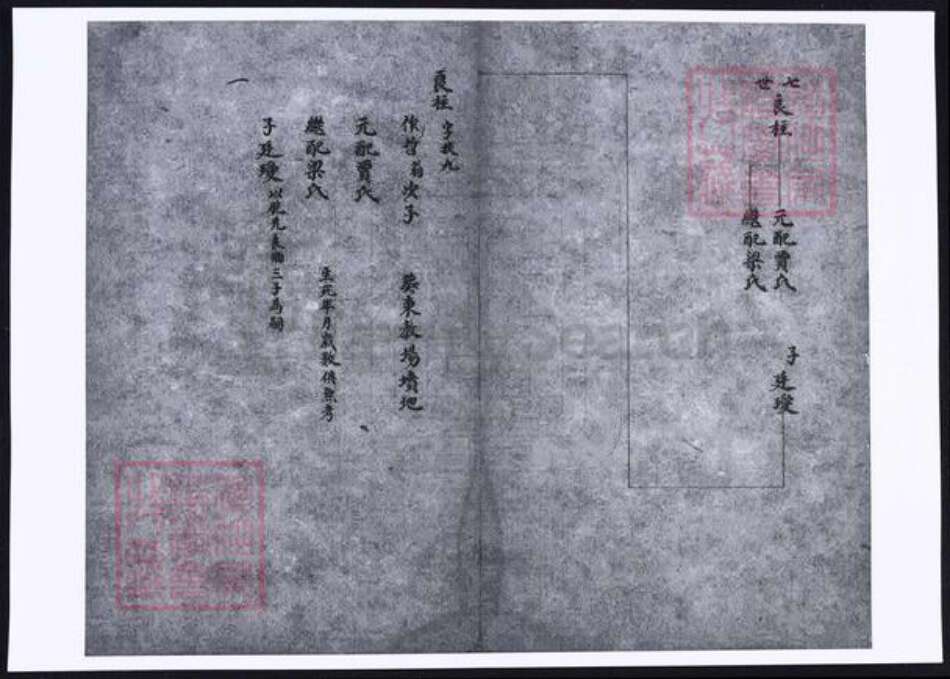 七世
良柱
元配賈氏
繼配梁氏
子廷璦
良柱 字我九
作哲翁次子 葵東教場墳地
元配賈氏
繼配梁氏 生死年月歲數俱無考
子廷璦 以從兄 三子為嗣
一